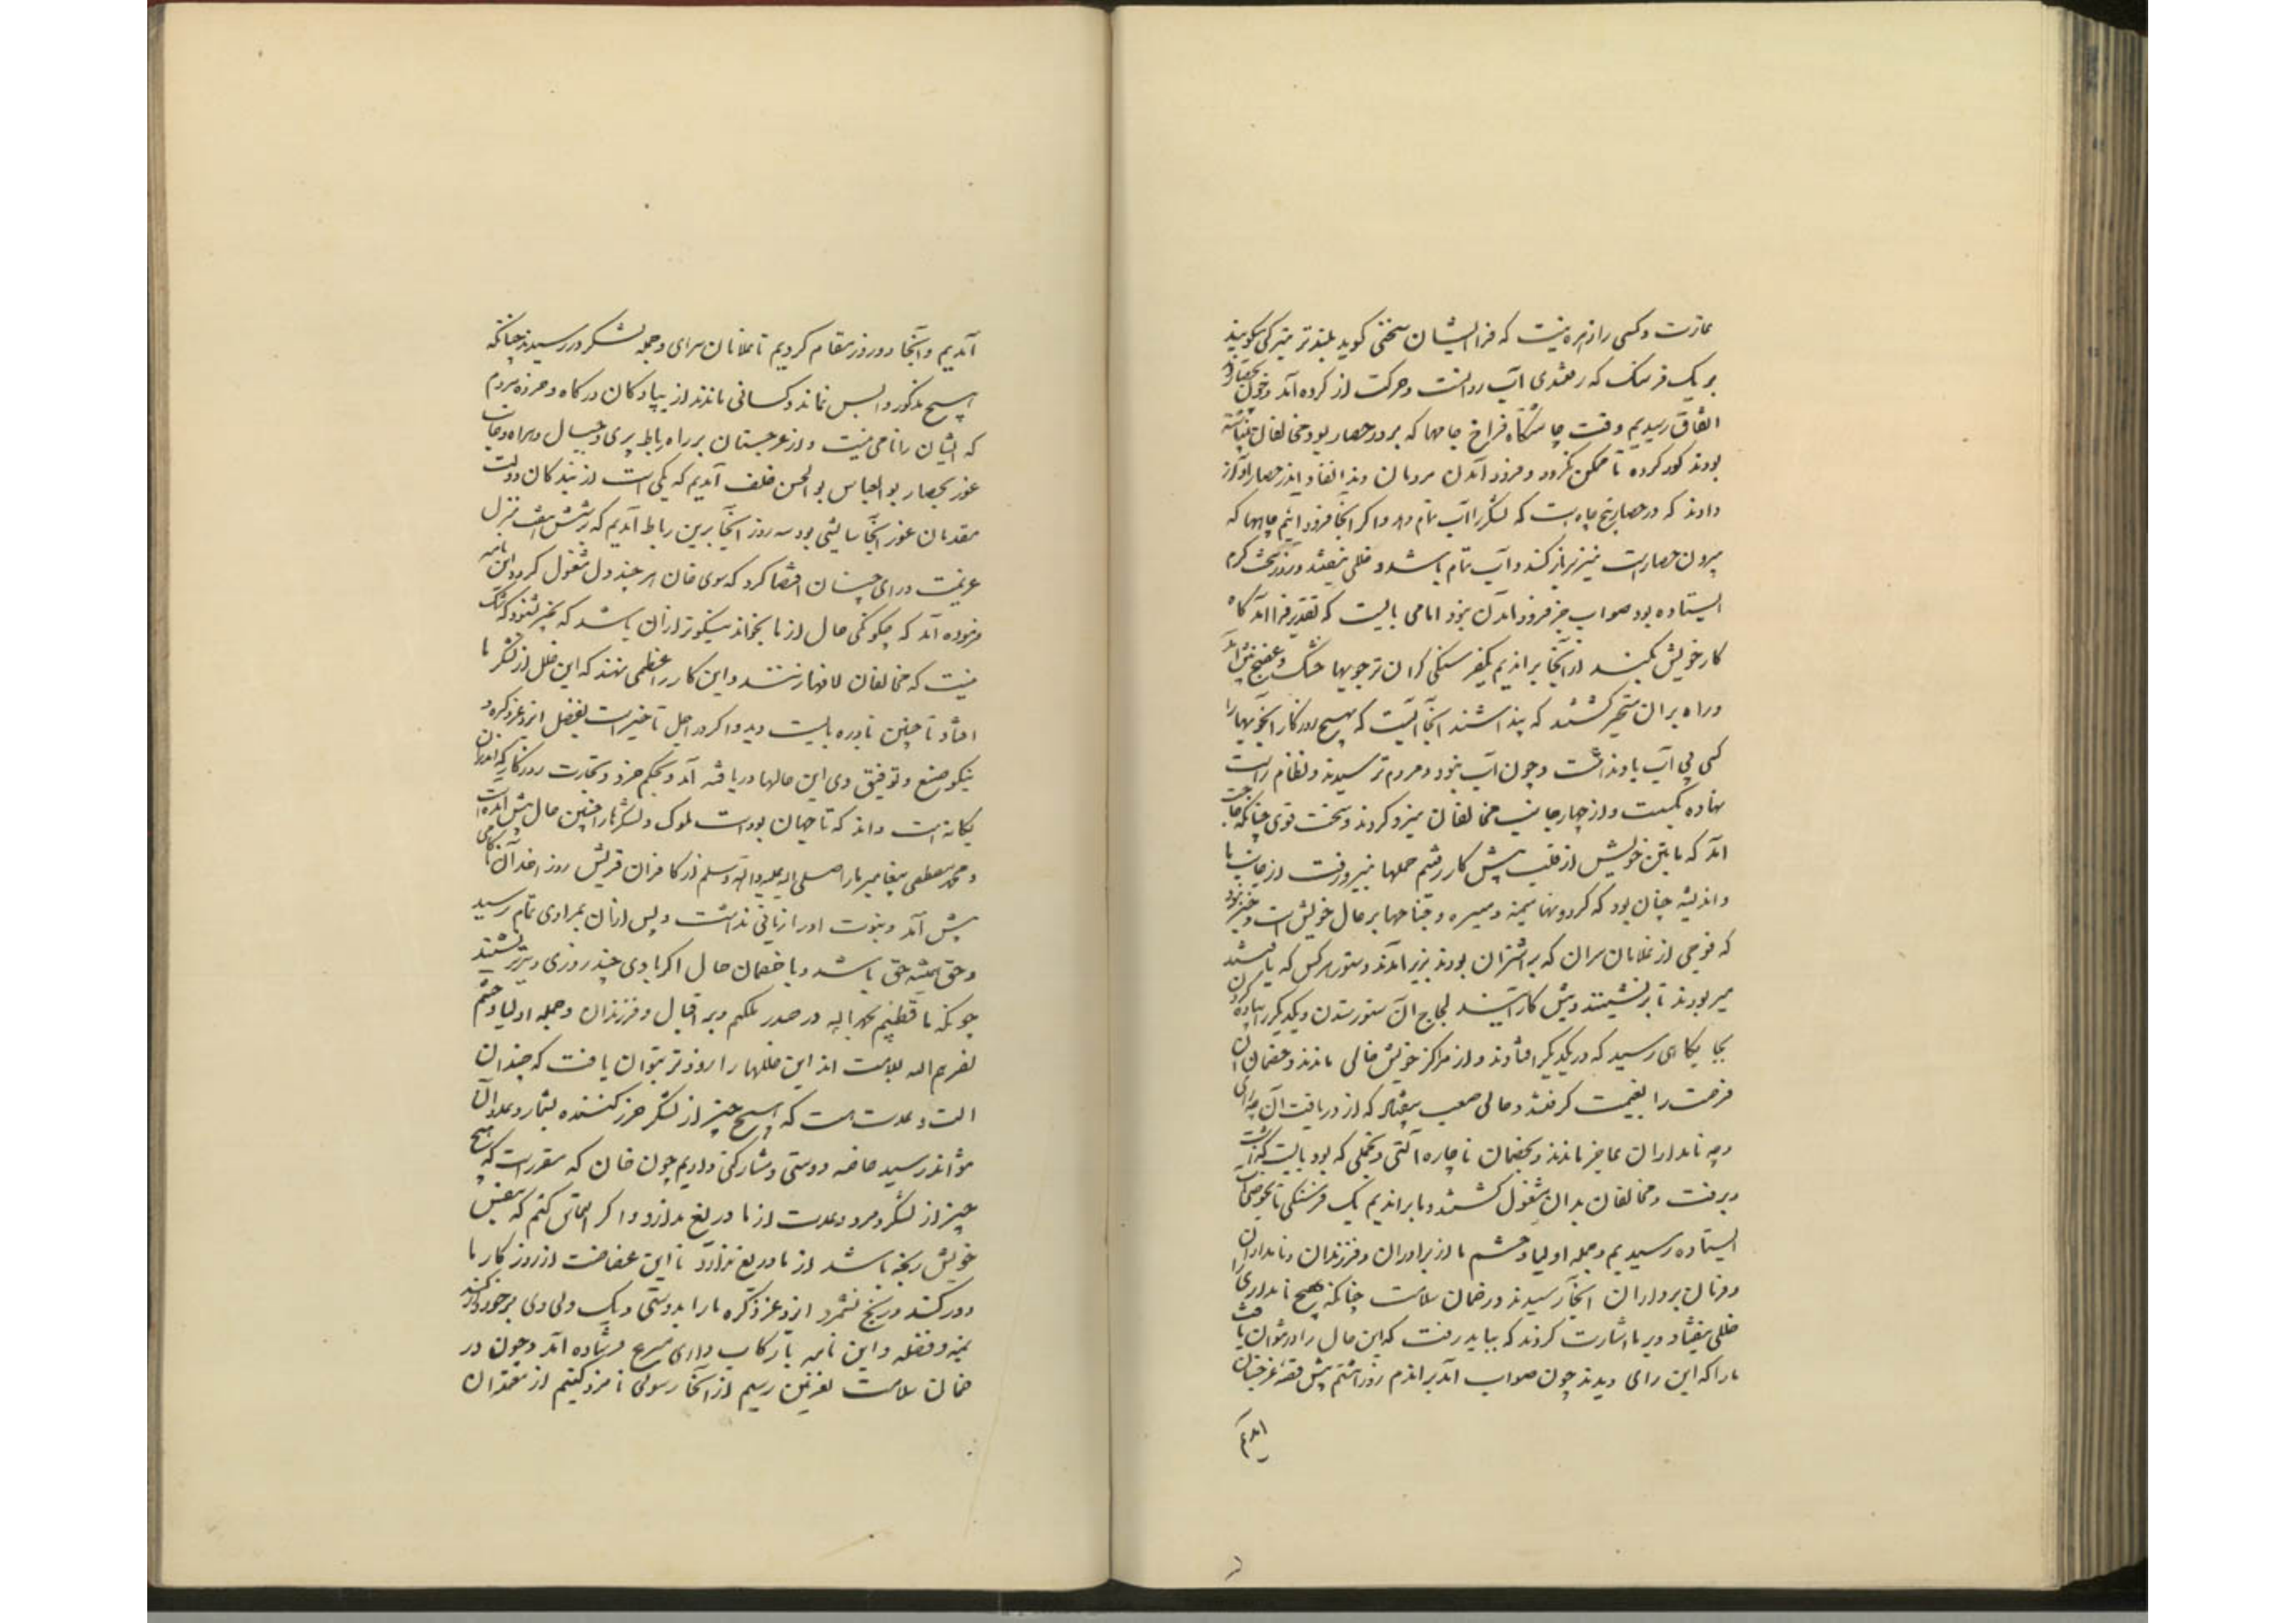 عادتست و کسی را زهره نیست که فرا ایشان سخنی گوید بلندتر میر کی میگویند
بر یک فرسنگ که رفتندی آب روانست و حرکت از کرده آمد و چون بحصار
اتفاق رسیدیم وقت چاشتگاه فراخ چاهها که بر در حصار بود مخالفان بینباشته
بودند کور کرده تا ممکن نگردد و فرود آمدن مردمان دندانقان از حصار آواز
دادند که در حصار پنج چاه است که لشکر را آب تمام دهد و اگر آنجا فرود آئیم چاهها که
بیرون حصار است نیز سر باز کنند و آب تمام باشد و خللی نیفتد و روز سخت گرم
ایستاده بود صواب جز فرود آمدن نبود اما می بایست که تقدیر فراز آمد کاه
کار خویش بکند از آنجا براندیم یکفرسنگی گران تر جویها خشک و عفج پیش آمد
و راه بران متحیر گشتند که پنداشتند آنجا آبست که بهیچ روزگار آنجویها را
کسی بی آب یاد نداشت و چون آب نبود مردم ترسیدند و نظام راست
نهاده بگسست و از چهار جانب مخالفان نیرو کردند و سخت قوی چنانکه حاجت
آمد که ما بتن خویش از قلب پیش کار رفتیم حملها بنیرو رفت از جانب ما
و اندیشه چنان بود که کردوسها میمنه و میسره و جناحها بر حال خویش است و خبر نبود
که فوجی از غلامان سرای که بر اشتران بودند بزیر آمدند و ستور هر کس که یافتند
میربودند تا برنشینند و پیش کار آیند لجاج آن ستور ستدن و یکدیگر را پیاده کردن
بجایگاهی رسید که در یکدیگر افتادند و از مراکز خویش خالی ماندند و خصمان آن
فرصت را بغنیمت گرفتند و حالی صعب بیفتاد که از دریافت آن چه رای
و چه نامداران عاجز ماندند و بخصمان ناچاره آلتی و تجملی که بود بایست گذاشت
و برفت و مخالفان بدان مشغول گشتند و ما براندیم یک فرسنگی تا بحوضی آب
ایستاده رسیدیم و جمله اولیا و حشم ما از برادران و فرزندان و نامداران
و فرمان برداران آنجا رسیدند در ضمان سلامت چنانکه هیچ نامداری را
خللی نیفتاد و بر ما اشارت کردند که بباید رفت که این حال را در نتوان یافت
ما را که این رای دیدند چون صواب آمد براندیم روز هشتم پیش قصبه غرجستان
آمدیم
آمدیم و آنجا دو روز مقام کردیم تا غلامان سرای و جمله لشکر در رسیدند چنانکه
هیچ مذکور واپس نماند و کسانی ماندند از پیادگان درگاه و خرده مردم
که ایشان را نامی نیست و از غرجستان بر راه رباط بزی و جبال هراه و جانب
غور بحصار بوالعباس بوالحسن خلف آمدیم که یکی است از بندگان دولت
مقدمان غور آنجا آسایشی بود سه روز آنجا برین رباط آمدیم که بر شش هفت منزل
غزنین است و رای چنان اقتضا کرد که سوی خان هر چند دل مشغول گردد این نامه
فرموده آمد که چگونگی حال از ما بخواند نیکوتر از آن باشد که بخبر بشنود که شک
نیست که مخالفان لافها زنند و این کار را عظمی نهند که این خلل از لشکر ما
افتاد تا چنین نادره بایست دید و اگر در اجل تاخیر است بفضل ایزد عز ذکره و
نیکو صنع و توفیق وی این حالها دریافته آید و بحکم خرد و تجارت روزگار که اندران
یگانه است داند که تا جهان بوده است ملوک و لشکرها را چنین حال پیش آمده است
و محمد مصطفی پیغامبر ما را صلی الله علیه و اله و سلم از کافران قریش روز احد آن ناکامی
پیش آمد و نبوت او را زیانی نداشت و پس از آن بمرادی تمام رسید
و حق همیشه حق باشد و با خصمان حال اگر بادی چند روزی دیرتر نشیند
چونکه ما قطبیم بحمد الله در صدر ملکیم و بر اقبال و فرزندان و جمله اولیا و حشم
نصرهم الله بسلامت اند این خللها را زودتر بتوان یافت که چندان
آلت و عدت هست که هیچ چیز از لشکر حرز کننده بشمار و عدد آن
نتواند رسید خاصه دوستی و مشارکی داریم چون خان که مقرر است که هیچ
چیز از لشکر و مرد و عدت از ما دریغ ندارد و اگر التماس کنیم که بنفس
خویش رنجه باشد از ما دریغ ندارد تا این غضاضت از روزگار ما
دور کند و رنج نشمرد ایزد عز ذکره ما را بدوستی و یک دلی وی برخوردار کند
بمنه و فضله و این نامه با رکاب داری مسرع فرستاده آمد و چون در
ضمان سلامت بغزنین رسیم از آنجا رسولی نامزد کنیم از معتمدان